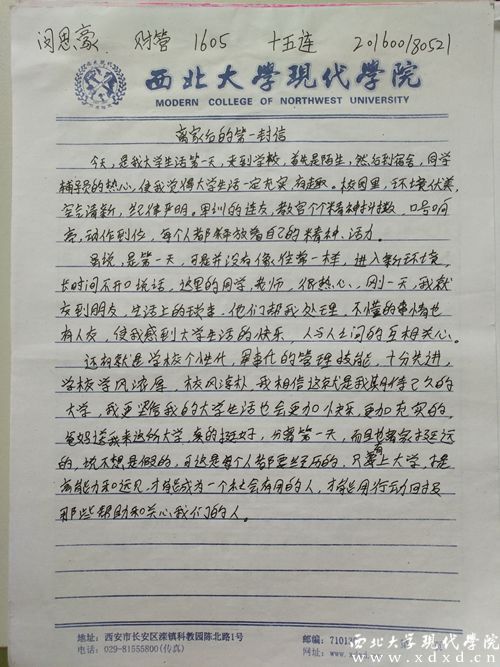 闵思豪 财管 1605 十五连 201600180521
西北大學現代學院
MODERN COLLEGE OF NORTHWEST UNIVERSITY
离家后的第一封信
今天,是我大学生活第一天,来到学校,首先是陌生,然后到宿舍,同学
辅导员的热心,使我觉得大学生活一定充实,有趣。校园里,环境优美,
空气清新,纪律严明。军训的连友,教官个个精神抖擞,口号响
亮,动作到位,每个人都释放着自己的精神、活力。
虽说,是第一天,可是并没有像往常一样,进入新环境,
长时间不开口说话,这里的同学,老师,很热心,刚一天,我就
交到朋友,生活上的琐事,他们帮我处理,不懂的事情也
有人友,使我感到大学生活的快乐,人与人之间的互相关心。
还有就是学校个性化,军事化的管理技能,十分先进,
学校学风浓厚,校风淳朴,我相信这就是我期待已久的
大学,我更坚信我的大学生活也会更加快乐,更加充实的。
爸妈送我来这所大学,真的挺好,分离第一天,而且也离家挺远
的,说不想是假的,可这是每个人都要经历的,只有上大学,才是
有能力和远见,才能成为一个社会有用的人,才能用行动回报
那些帮助和关心我们的人。
地址:西安市长安区滦镇科教园陈北路1号
邮编:7101
电话:029-81555800(传真)
网址:www.xd
西北大学现代学院
www.xdxd.cn